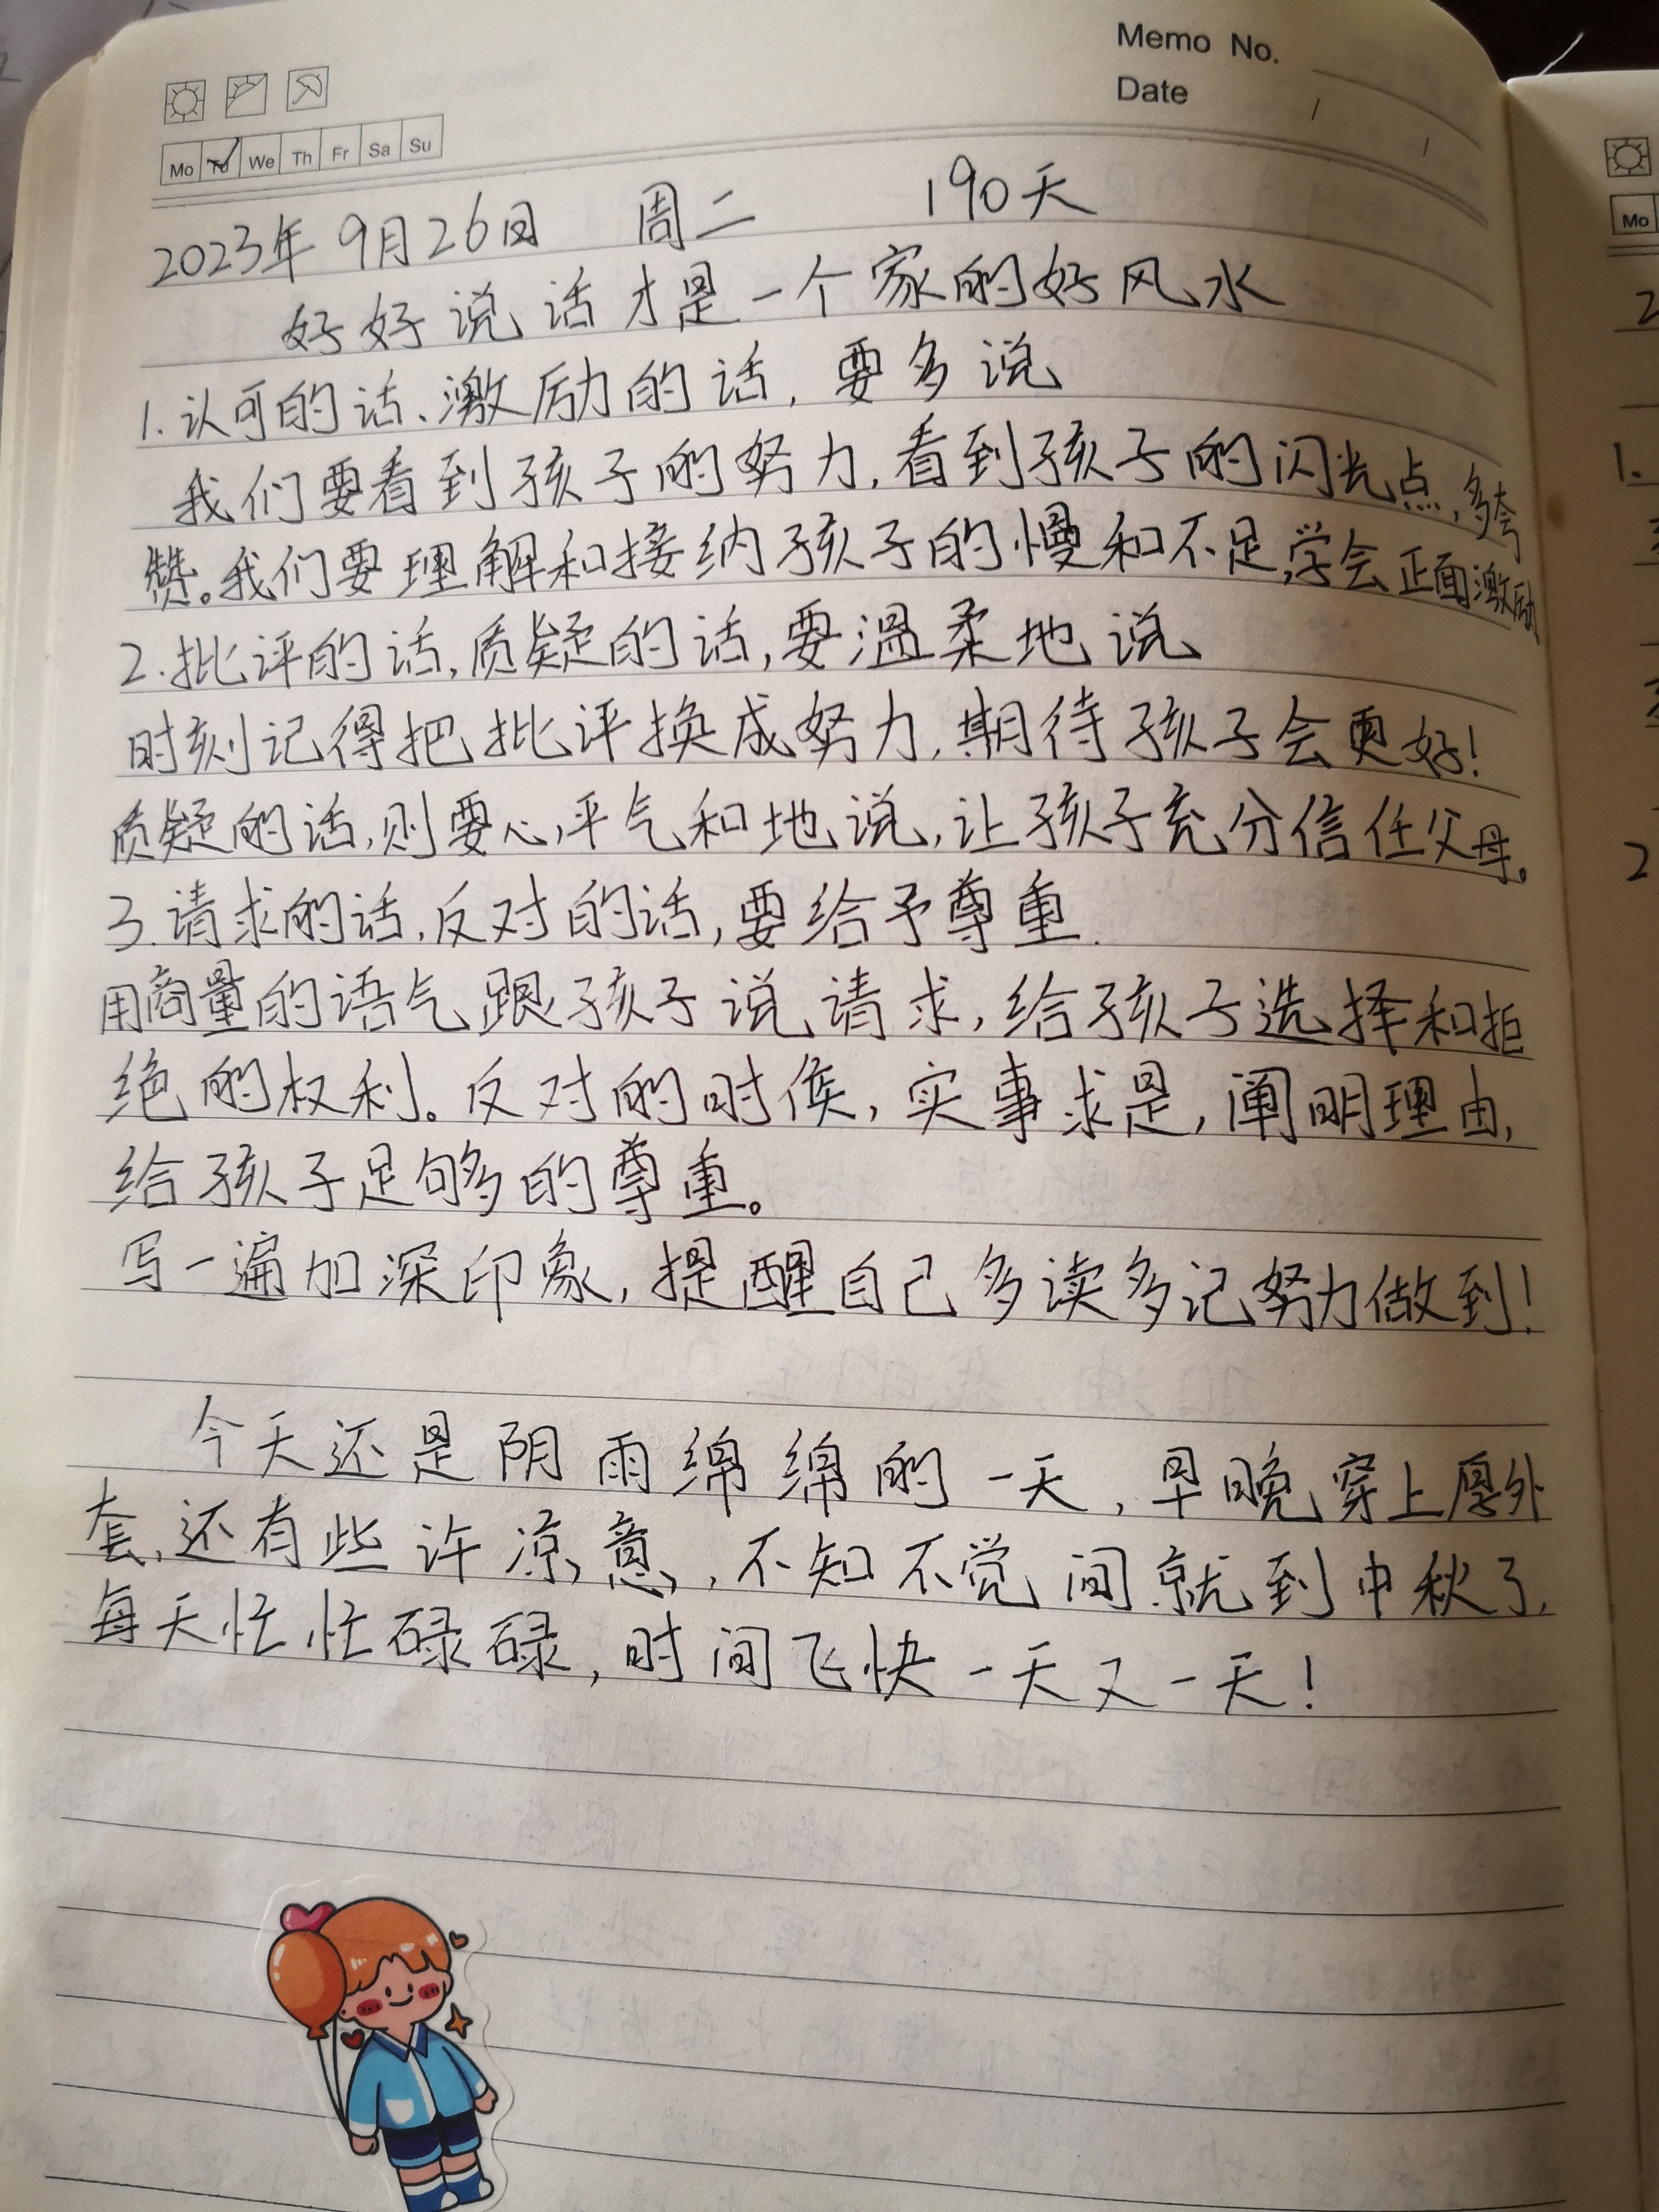 Memo No.
Date
Mo Tu We Th Fr Sa Su
2023年9月26日 周二 190天
好好说话才是一个家的好风水
1.认可的话、激励的话,要多说
我们要看到孩子的努力,看到孩子的闪光点,多夸
赞。我们要理解和接纳孩子的慢和不足,学会正面激励
2.批评的话,质疑的话,要温柔地说
时刻记得把批评换成努力,期待孩子会更好!
质疑的话,则要心平气和地说,让孩子充分信任父母。
3.请求的话,反对的话,要给予尊重.
用商量的语气跟孩子说请求,给孩子选择和拒
绝的权利。反对的时候,实事求是,阐明理由,
给孩子足够的尊重。
写一遍加深印象,提醒自己多读多记努力做到!
今天还是阴雨绵绵的一天,早晚穿上厚外
套,还有些许凉意,不知不觉间就到中秋了,
每天忙忙碌碌,时间飞快一天又一天!
Mo
2
1.
2